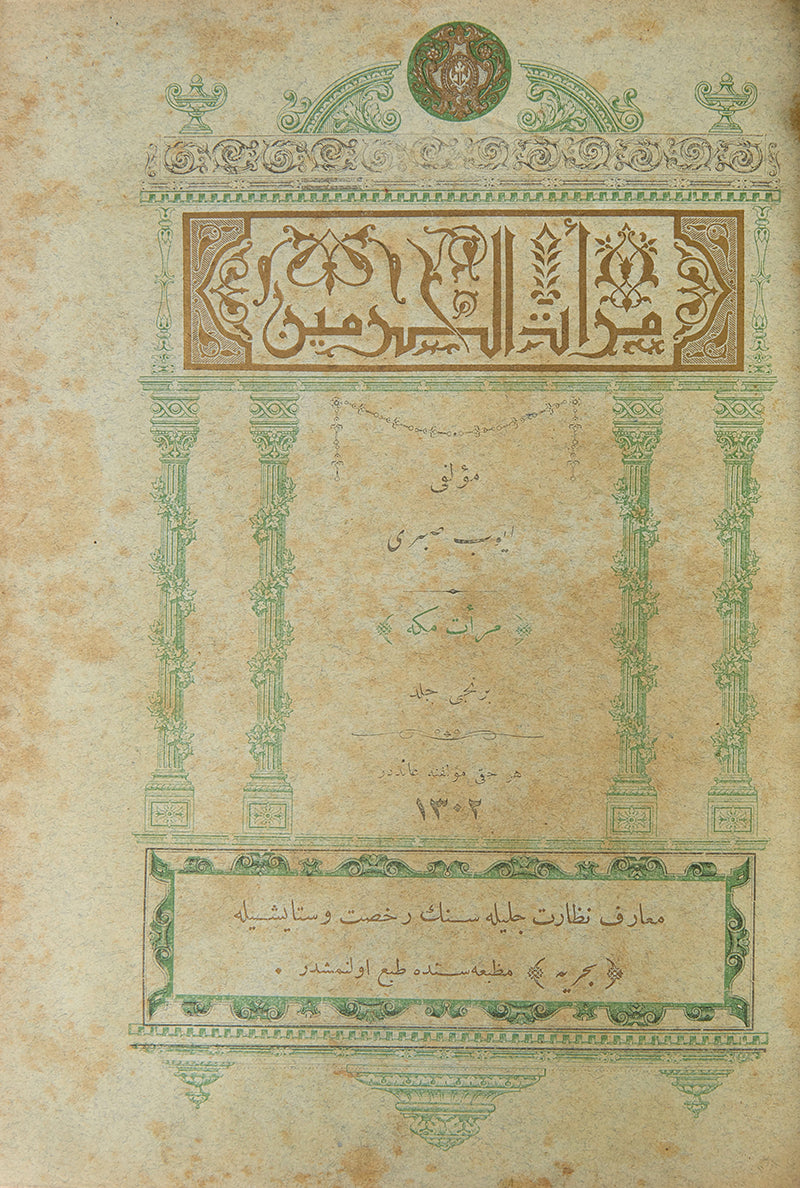 مرأت الحرمين
مؤلفى
ايوب صبرى
﴿ مرأت مكه ﴾
برنجى جلد
هر حقى مؤلفنه عائددر
١٣٠٢
معارف نظارت جليله سنك رخصت و ستايشيله
﴿ بحريه ﴾ مطبعه‌سنده طبع اولنمشدر .